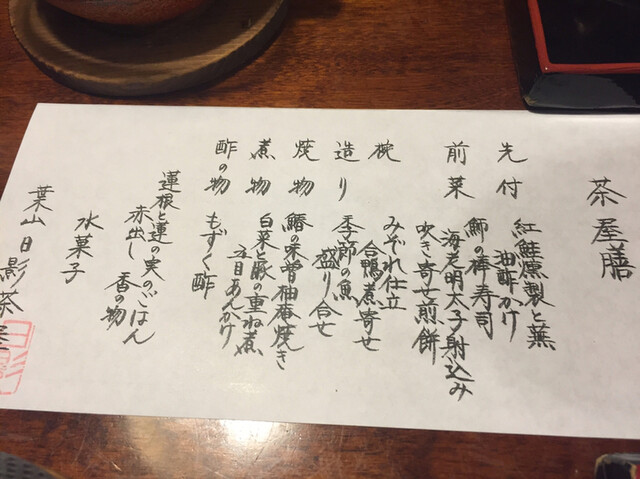 茶屋膳
先付 紅鮭燻製と蕪
油酢かけ
前菜 鰤の棒寿司
海老明太子射込み
吹き寄せ煎餅
椀 みぞれ仕立
合鴨煮寄せ
造り 季節の魚
盛り合せ
焼物 鰆の味噌柚庵焼き
煮物 白菜と豚の重ね煮
五目あんかけ
酢の物 もずく酢
蓮根と蓮の実のごはん
赤出し 香の物
水菓子
葉山日影茶屋